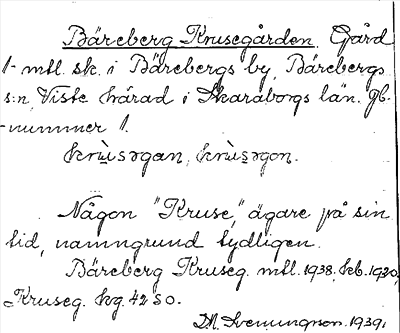 Bäreberg Krusegården. Gård
1 mtl. sk. i Bärebergs by, Bärebergs
s:n, Viste härad i Skaraborgs län. Jb.
-nummer 1.
Någon "Kruse," ägare på sin
tid, namngrund tydligen.
Bäreberg Kruseg. mtl. 1938, keb. 1920,
Kruseg. hg. 42 SO.
M. Svenungson. 1939.